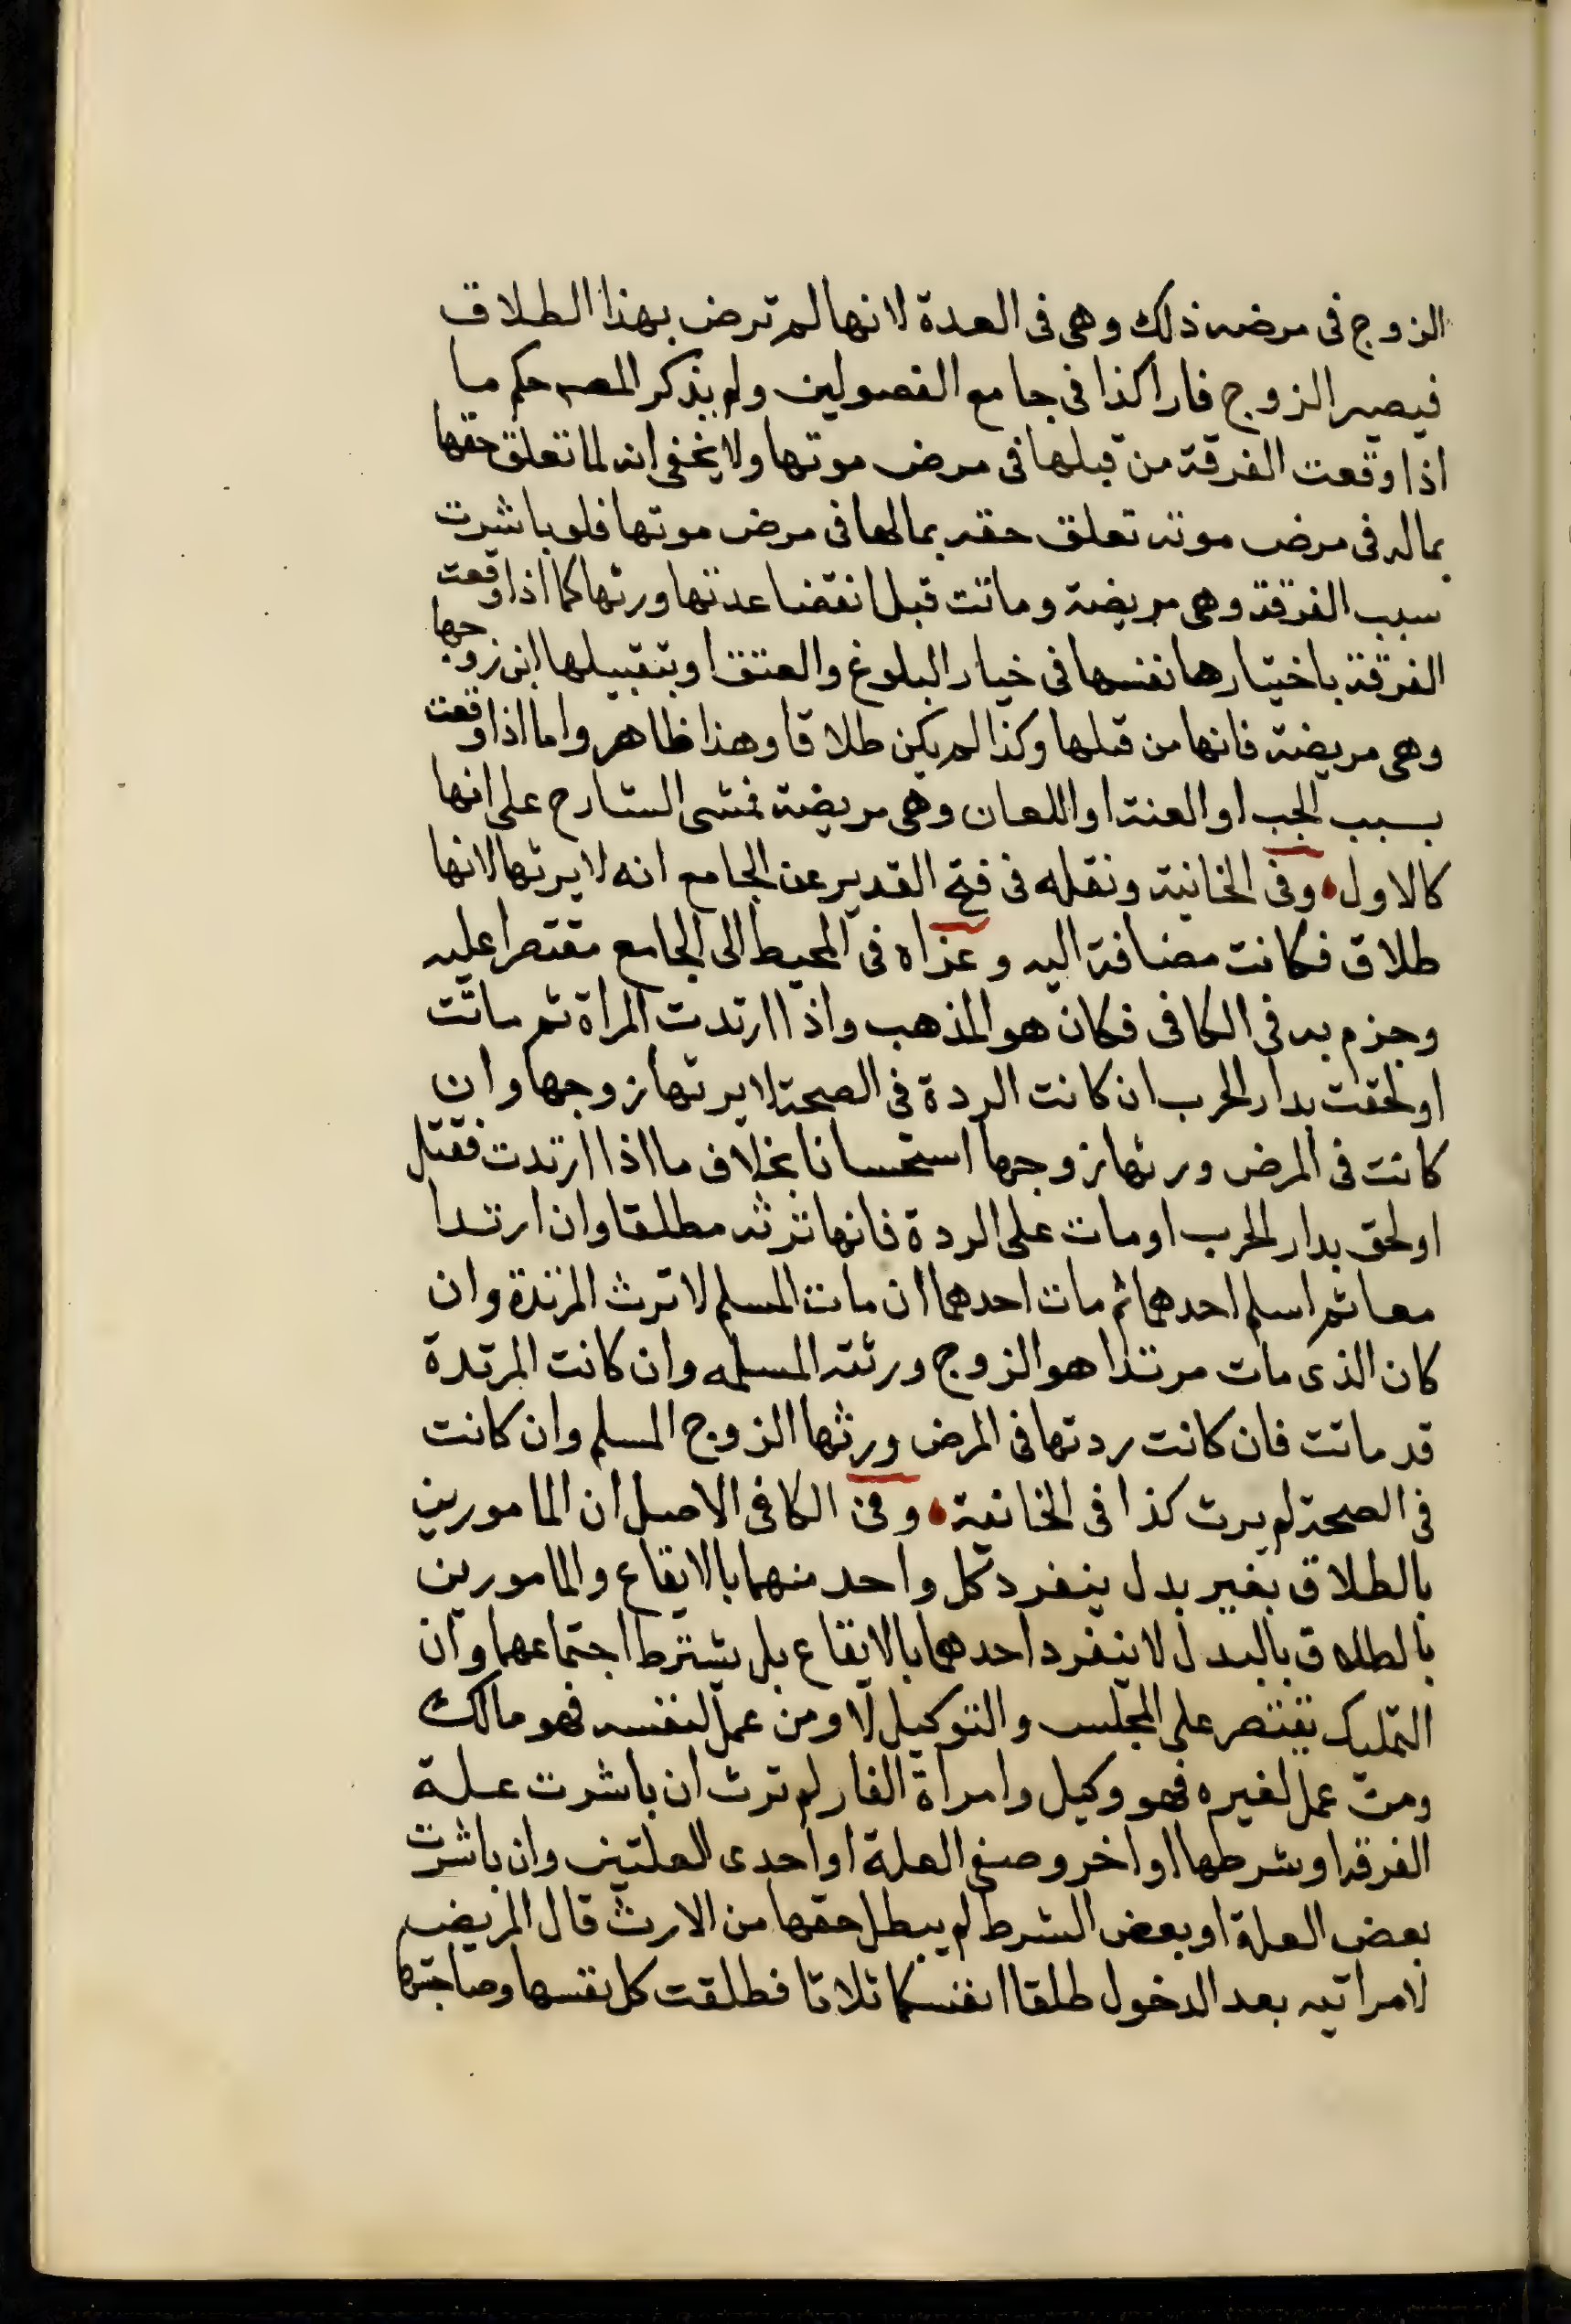 الزوج فى مرضه ذلك وهى فى العدة لانها لم ترض بهذا الطلاق
فيصير الزوج فارا كذا فى جامع الفصولين ولم يذكر المصـ حكم ما
اذا وقعت الفرقة من قبلها فى مرض موتها ولا يخفى انه لما تعلق حقها
بماله فى مرض موته تعلق حقه بمالها فى مرض موتها فلو باشرت
سبب الفرقة وهى مريضة وماتت قبل انقضا عدتها ورثها كما اذا وقعت
الفرقة باختيارها نفسها فى خيار البلوغ والعتق او بتقبيلها ابن زوجها
وهى مريضة فانها من قبلها وكذا لم يكن طلاقا وهذا ظاهر واما اذا وقعت
بسبب الجب او العنة او اللعان وهى مريضة فمشى الشارح على انها
كالاول وفى الخانية ونقله فى فتح القدير عن الجامع انه لا يرثها لانها
طلاق فكانت مضافة اليه وعزاه فى المحيط الى الجامع مقتصرا عليه
وجزم به فى الكافى فكان هو المذهب واذا ارتدت المراة ثم ماتت
او لحقت بدار الحرب ان كانت الردة فى الصحة لا يرثها زوجها وان
كانت فى المرض ورثها زوجها استحسانا بخلاف ما اذا ارتدت فقتل
او لحق بدار الحرب او مات على الردة فانها ترثه مطلقا وان ارتدا
معا ثم اسلم احدهما ثم مات احدهما ان مات المسلم لا ترث المرتدة وان
كان الذى مات مرتدا هو الزوج ورثته المسلمه وان كانت المرتدة
قد ماتت فان كانت ردتها فى المرض ورثها الزوج المسلم وان كانت
فى الصحة لم يرث كذا فى الخانية وفى الكافى الاصل ان المامورين
بالطلاق بغير بدل ينفرد كل واحد منهما بالايقاع والمامورين
بالطلاق بالبدل لا ينفرد احدهما بالايقاع بل يشترط اجتماعهما وان
التمليك يقتصر على المجلس والتوكيل لا ومن عمل لنفسه فهو مالك
ومن عمل لغيره فهو وكيل وامراة الفار لم ترث ان باشرت علة
الفرقة او شرطها او اخر وصفى العلة او احدى العلتين وان باشرت
بعض العلة او بعض الشرط لم يبطل حقها من الارث قال المريض
لامراتيه بعد الدخول طلقا انفسكما ثلاثا فطلقت كل نفسها وصاحبتها